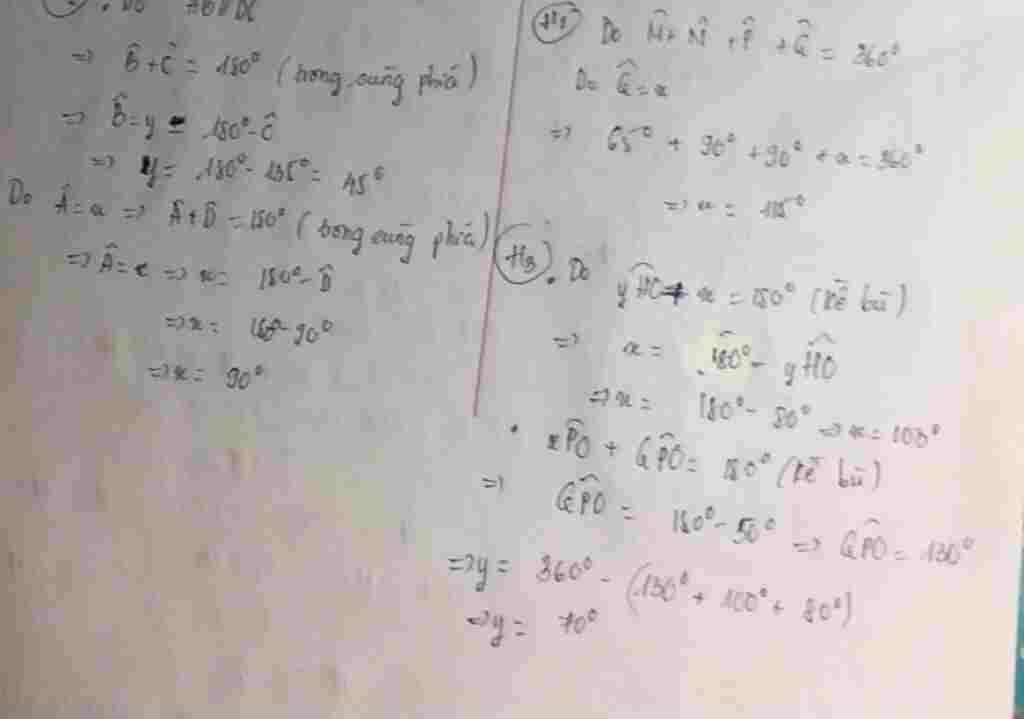 Do AB//DC
=> B̂ + Ĉ = 180° (trong cùng phía)
=> B̂ = y = 180° - Ĉ
=> y = 180° - 135° = 45°
Do Â = x => Â + D̂ = 180° (trong cùng phía)
=> Â = x => x = 180° - D̂
=> x = 180° - 90°
=> x = 90°
Do M̂ + N̂ + P̂ + Q̂ = 360°
Do Q̂ = x
=> 65° + 90° + 90° + x = 360°
=> x = 115°
H3 . Do yHO + x = 180° (kề bù)
=> x = 180° - yHO
=> x = 180° - 80° => x = 100°
. xPO + QPO = 180° (kề bù)
=> QPO = 180° - 50° => QPO = 130°
=> y = 360° - (130° + 100° + 80°)
=> y = 70°